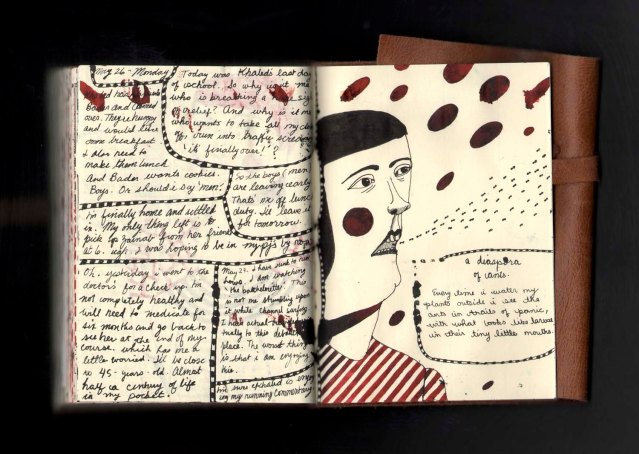 May 26 - Monday
Today was Khaled's last day
of school. So why wasn't he
who is breathing a
of relief? And why is it me
who wants to take all my
off, run into traffic
'it's finally over!'?
Bader and
over. They're hungry
and would like
some breakfast
I also need to
make them lunch
And Bader wants cookies.
Boys. Or should i say "men."
So the boys (men)
are leaving early
That's me of lunch
duty. I'll leave it
for tomorrow.
I'm finally home and settled
in. My only thing left is to
pick up Zainab from her friend
at 6. ugh. I was hoping to be in my pjs by
Oh. yesterday i went to the
doctor's for a check up. I'm
not completely healthy and
will need to medicate for
six months and go back to
see her at the end of my
course. which has me a
little worried. I'll be close
to 45-years-old. Almost
half a century of life
in my pocket.
May 27. I have
I am watching
the bachelorette. This
is not me stumbling upon
it while channel surfing
I have actual
to this
place. The worst thing
is that i am enjoying
this.
my running commentary
a diaspora
of ants.
Every time i water my
plants outside i see the
ants in trails of panic,
with what looks like larvae
in their tiny little mouths.